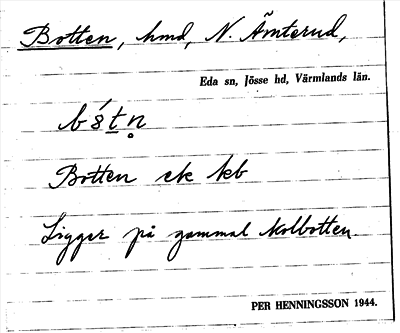 Botten, hmd, N. Ämterud,
Eda sn, Jösse hd, Värmlands län.
Botten ek kb
Ligger på gammal kolbotten.
PER HENNINGSSON 1944.